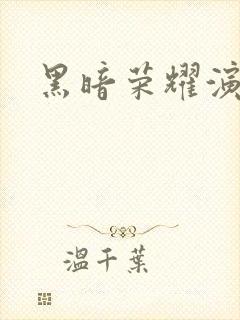 黑暗荣耀演
温千葉